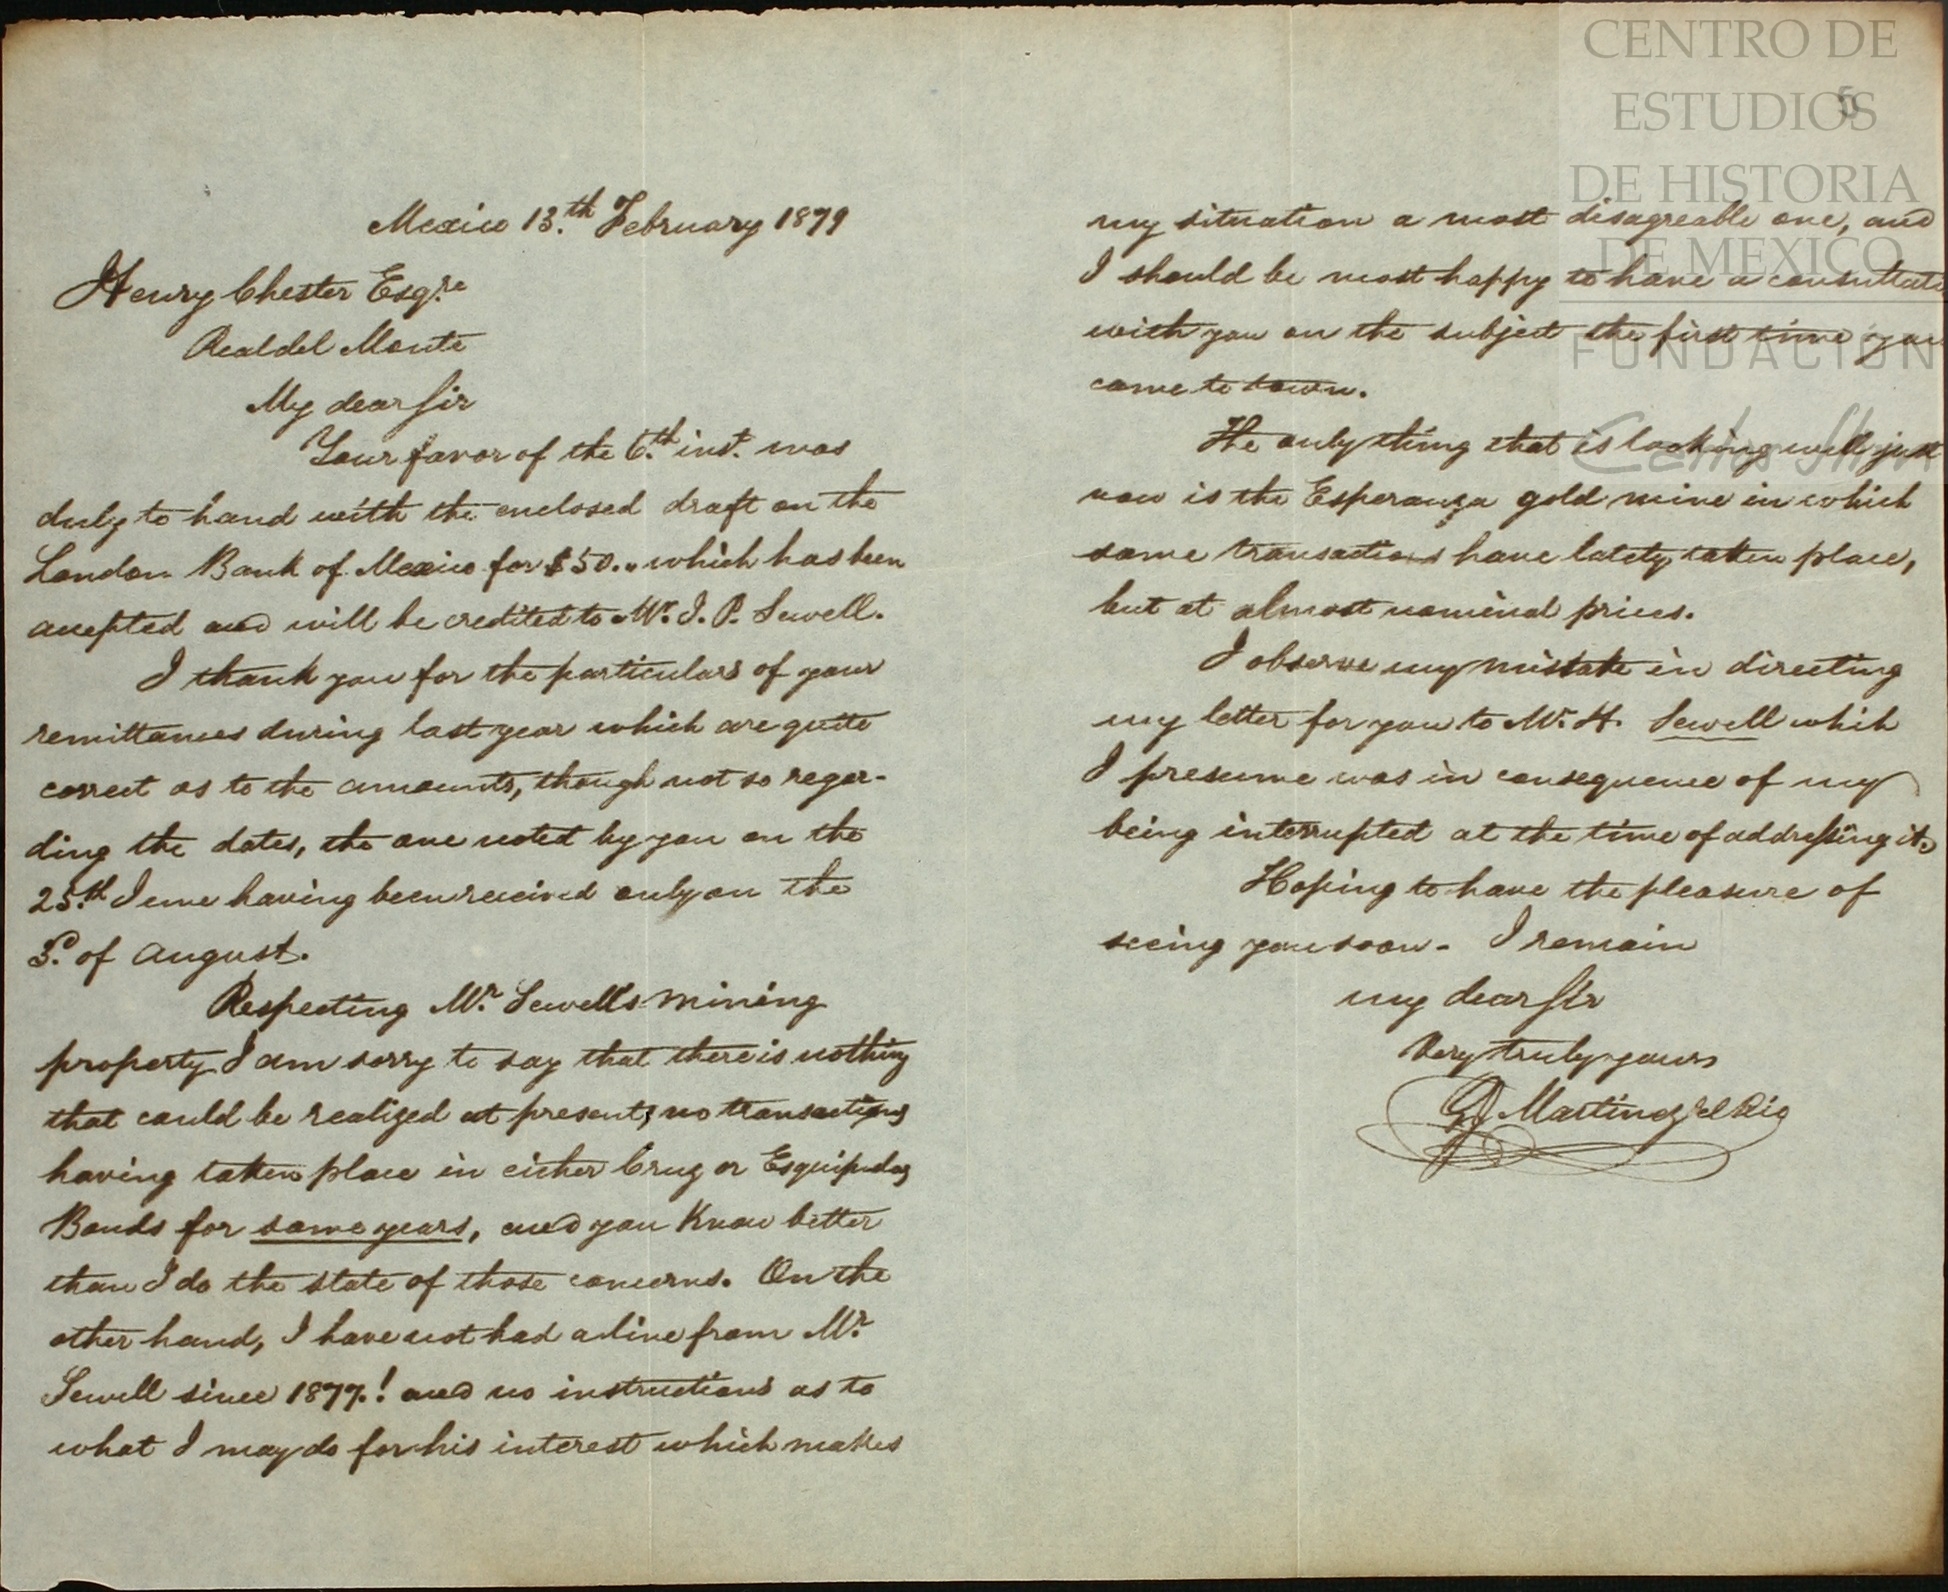 Mexico 13.th February 1879
Henry Chester Esqre
Real del Monte
My dear Sir
Your favor of the 6.th inst. was
duly to hand with the enclosed draft on the
London Bank of Mexico for $50.„ which has been
accepted and will be credited to Mr. I. P. Sewell.
I thank you for the particulars of your
remittances during last year which are quite
correct as to the amounts, though not so regar-
ding the dates, the one noted by you on the
25.th June having been received only on the
of August.
Respecting Mr. Sewell's mining
property I am sorry to say that there is nothing
that could be realized at present, no transactions
having taken place in either Cruz or Esquipulas
Bonds for some years, and you Know better
than I do the state of those concerns. On the
other hand, I have not had a line from Mr.
Sewell since 1877.! and no instructions as to
what I may do for his interest which makes
my situation a most disagreable one, and
I should be most happy to have a consultati
with you on the subject the first time you
come to town.
The only thing that is looking well just
now is the Esperanza gold mine in which
some transactions have lately taken place,
but at almost nominal prices.
I observe my mistake in directing
my letter for you to Mr. H. Sewell whih
I presume was in consequence of my
being interrupted at the time of addressing it.
Hoping to have the pleasure of
seeing you soon - I remain
my dear Sir
Very truly yours
Martinez del Rio
5
CENTRO DE
ESTUDIOS
DE HISTORIA
DE MEXICO
FUNDACIÓN
Carlos Slim